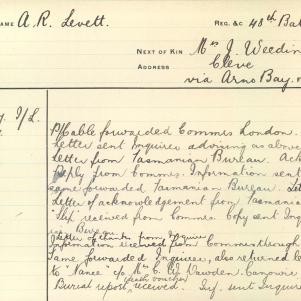 NAME A. R. Levett.
REG. &C 48th Bat
NEXT OF KIN Mrs J. Weedin
ADDRESS Cleve
via Arno Bay.
I/L.
P/Cable forwarded Commrs London.
Letter sent Inquirer advising as above
Letter from Tasmanian Bureau. Ack
Reply from Commrs. Information sent
same forwarded Tasmanian Bureau. Let
Letter of acknowledgement from Tasmania
"Slip" received from Commrs Copy sent Inq
Bureau.
Letter of thanks from Inquirer
Information received from Commrs through
Same forwarded Inquirer, also returned
to "Same" c/o Mrs C. W. Canowie
Burial report received. Inf. sent Inquire